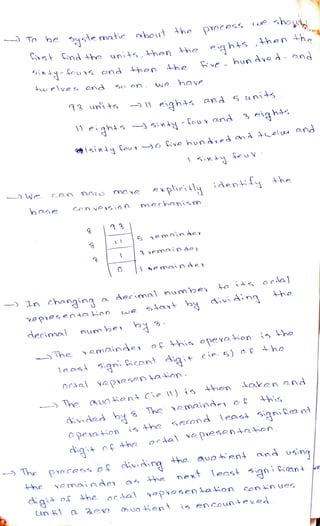 → To be systematic about the process we should
first find the units, then the eights, then the
sixty-fours and then the five-hundred-and
twelves and so on. we have
93 units → 11 eights and 5 units
11 eights → 1 sixty-four and 3 eights
1 sixty four → 0 five hundred and twelve and
1 sixty four.
→ We can now more explicitly identify the
base conversion mechanism
8 | 93
8 | 11 | 5 remainder
8 | 1 | 3 remainder
0 | 1 remainder
→ In changing a decimal number to its octal
representation we start by dividing the
decimal number by 8.
→ The remainder of this operation is the
least significant digit (ie. 5) of the
octal representation.
→ The quotient (ie 11) is then taken and
divided by 8 The remainder of this
operation is the second least significant
digit of the octal representation.
→ The process of dividing the quotient and using
the remainder as the next least significant
digit of the octal representation continues
until a zero quotient is encountered